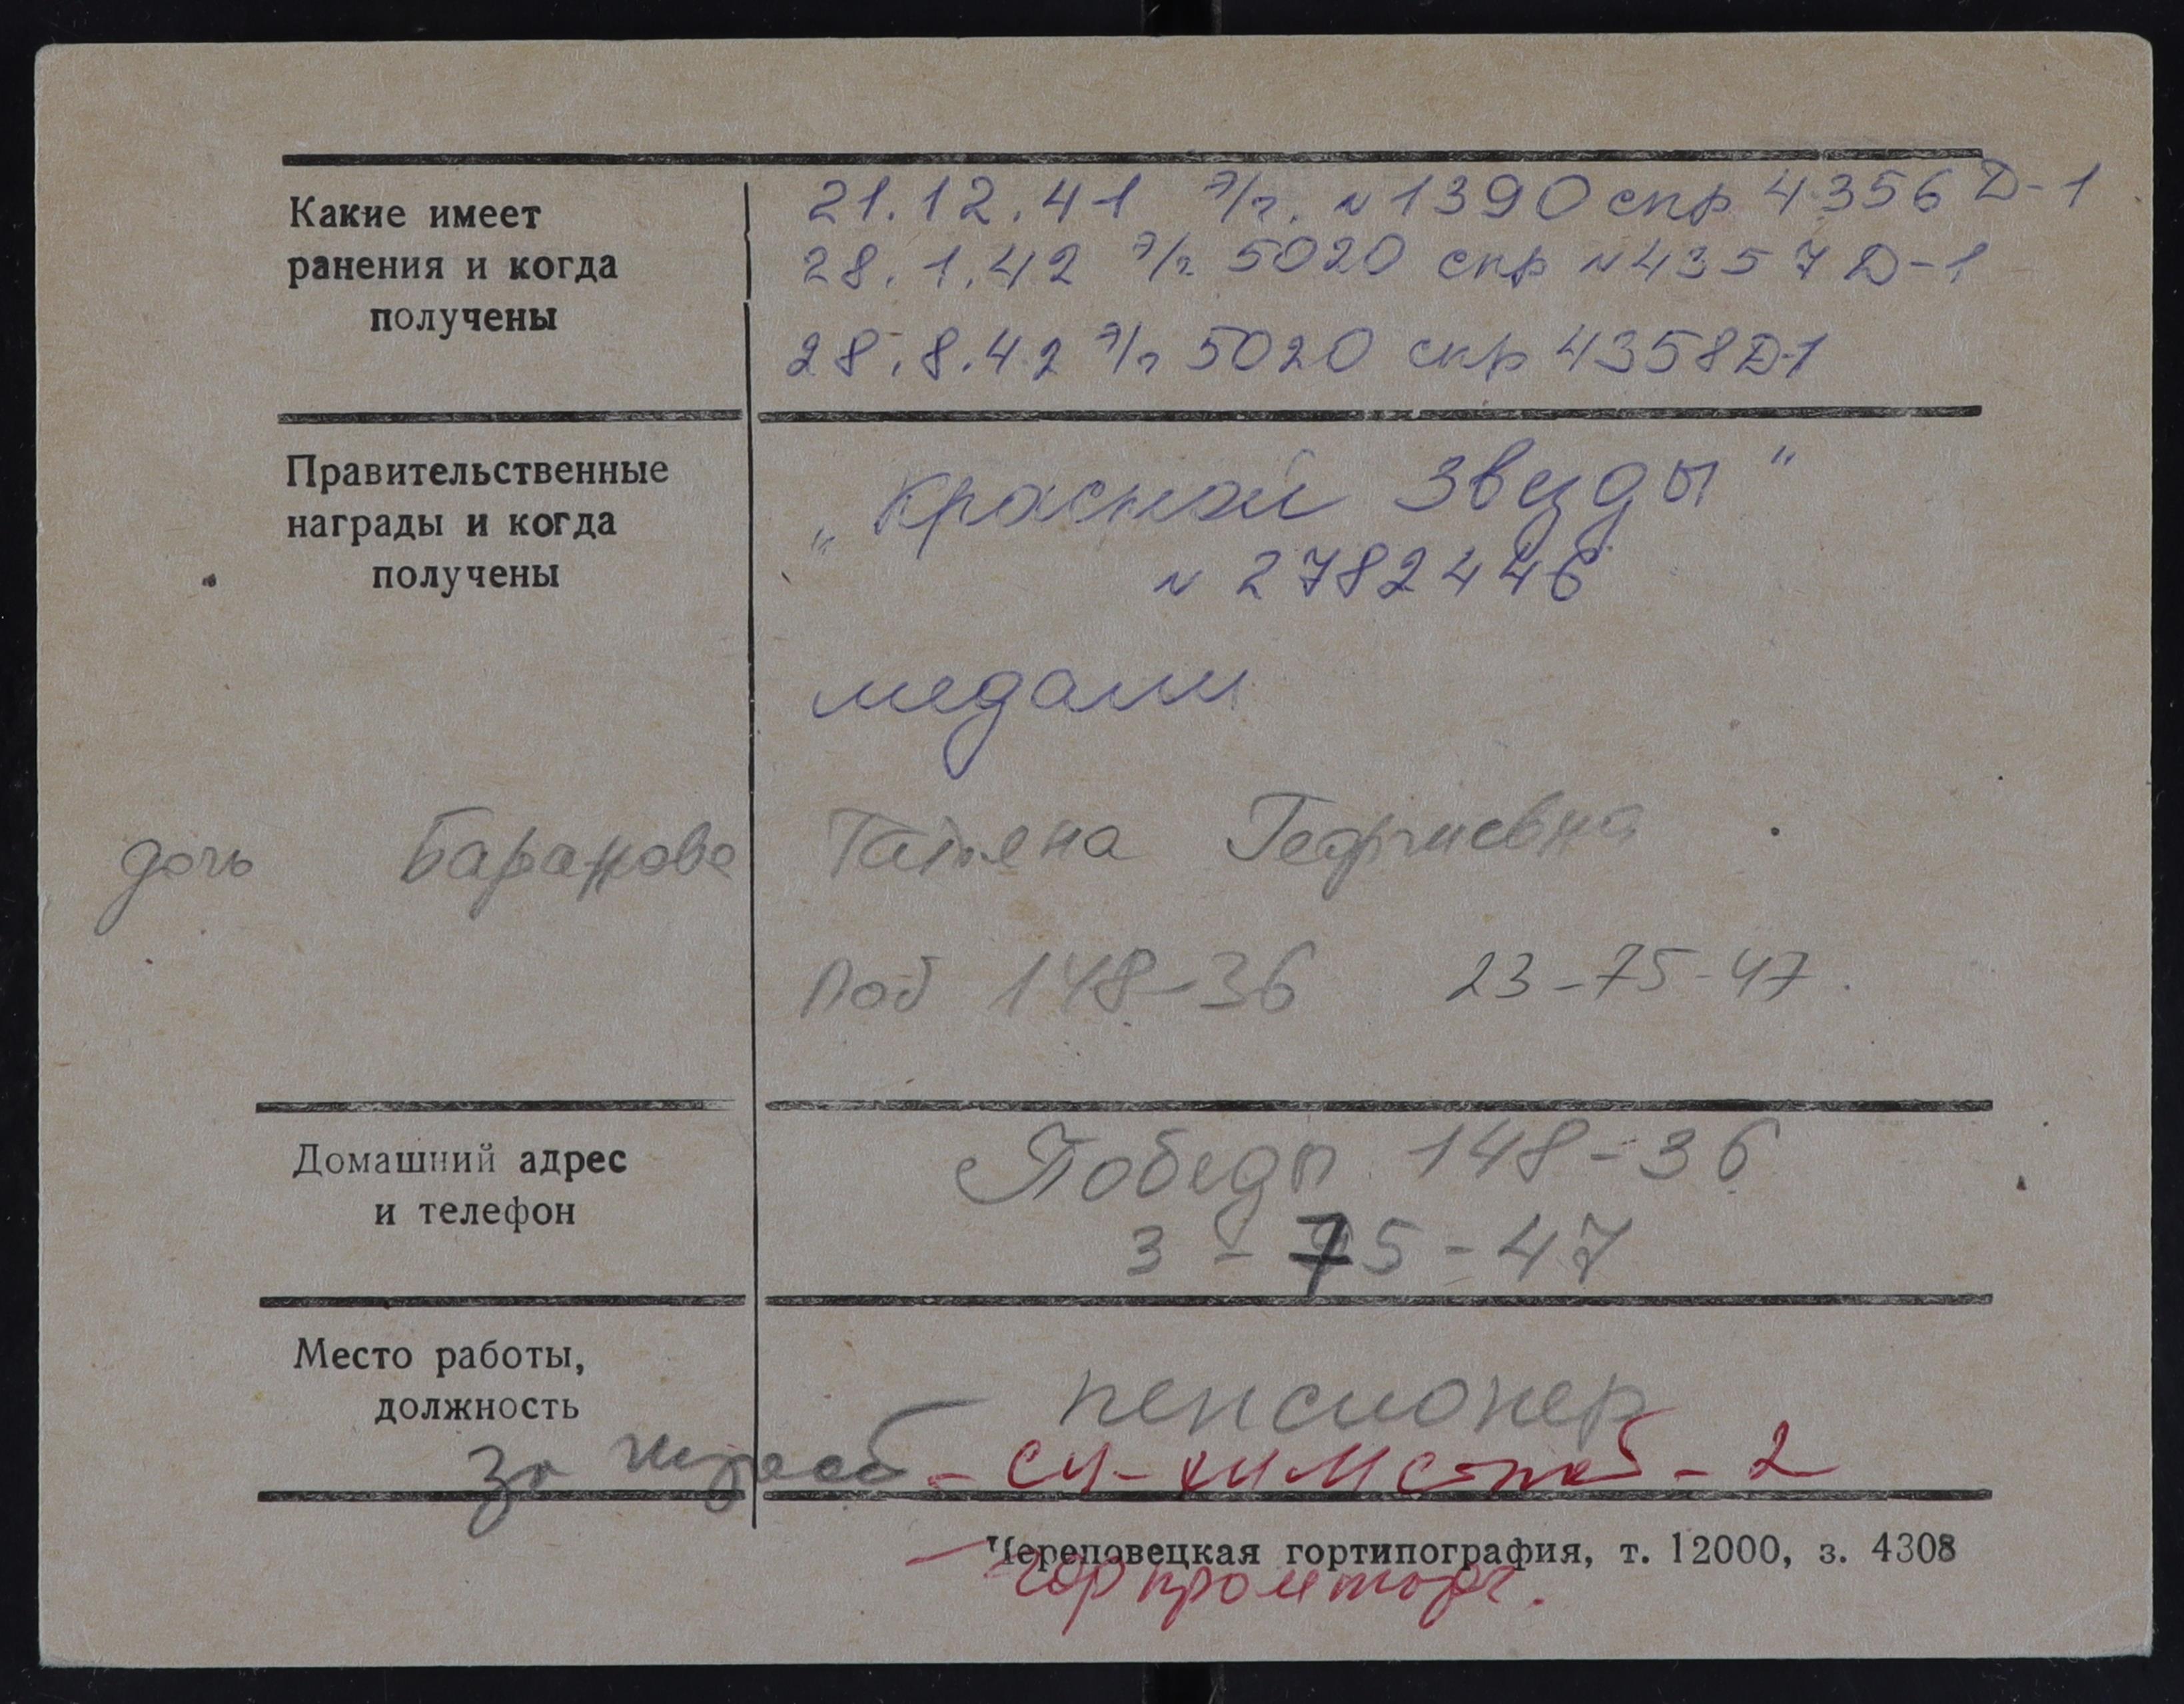 Какие имеет
ранения и когда
получены
21.12.41 э/г. N 1390 спр 4356 Д-1
28.1.42 э/г 5020 спр N 4357 Д-1
28.8.42 э/г 5020 спр 4358 Д-1
Правительственные
награды и когда
получены
„Красной Звезды"
N 2782446
медали
дочь Баранова Татьяна Георгиевна
Поб 148-36 23-75-47.
Домашний адрес
и телефон
Победы 148-36
3-75-47
Место работы,
должность
пенсионер
за - СУ-химстаб-2
Череповецкая гортипография, т. 12000, з. 4308
- горпромторг.